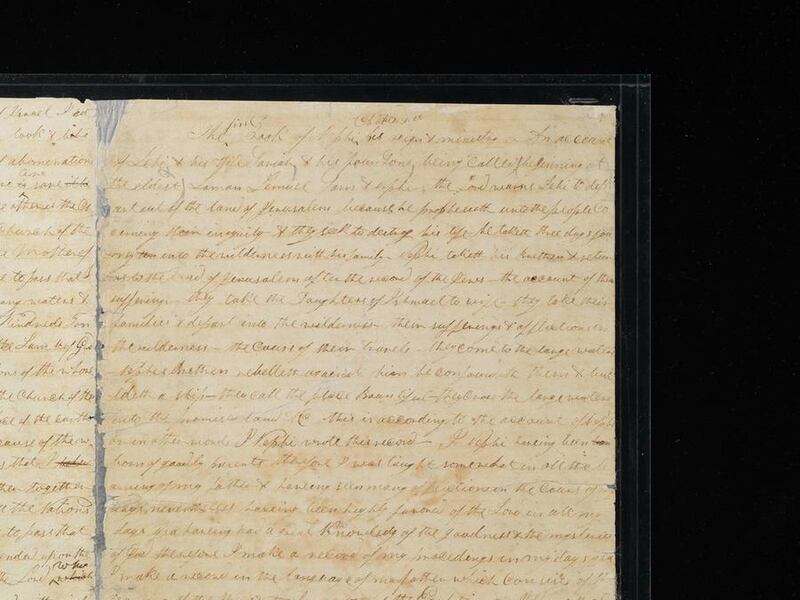 f Israel I
look & 
abominations
are
the
Church of the
Mother of
to pass that
many waters &
Kindreds Ton
the Lamb of God
ons of the whole
the Church of the
face of the earth
because of the w
s that I
ther together
d the Nations
to pass that
ended upon the
who
the Lord which
first Chapter
The Book of Nephi his reign & ministry — An account
of Lehi & his wife Sariah & his four Sons being called (beginning at
the eldest) Laman Lemuel Sam & Nephi — the Lord warns Lehi to dep
art out of the land of Jerusalem because he prophesieth unto the people co
cerning their iniquity & they seek to destroy his life he taketh three days jou
rney into the wilderness with his family — Nephi taketh his brethren & retur
ns to the land of Jerusalem after the record of the Jews — the account of their
sufferings — they take the Daughters of Ishmael to wife — they take their
families & depart into the wilderness — their sufferings & afflictions in
the wilderness — the Cours of their travels — they come to the large waters
Nephis Brethren rebelleth against him he confoundeth them & bui
ldeth a ship — they call the place Bountiful — they cross the large waters
into the promised land &C this is according to the account of Nephi
or in other words I Nephi wrote this record — I Nephi having been
born of goodly parents therefore I was taught somewhat in all the le
arning of my father & having seen many afflictions in the Cours of m
days nevertheless having been highly favored of the Lord in all my
days yea having had a great Knowledg of the goodness & the mysteries
of God therefore I make a record of my proceedings in my days yea
I make a record in the language of my father which Consists of the